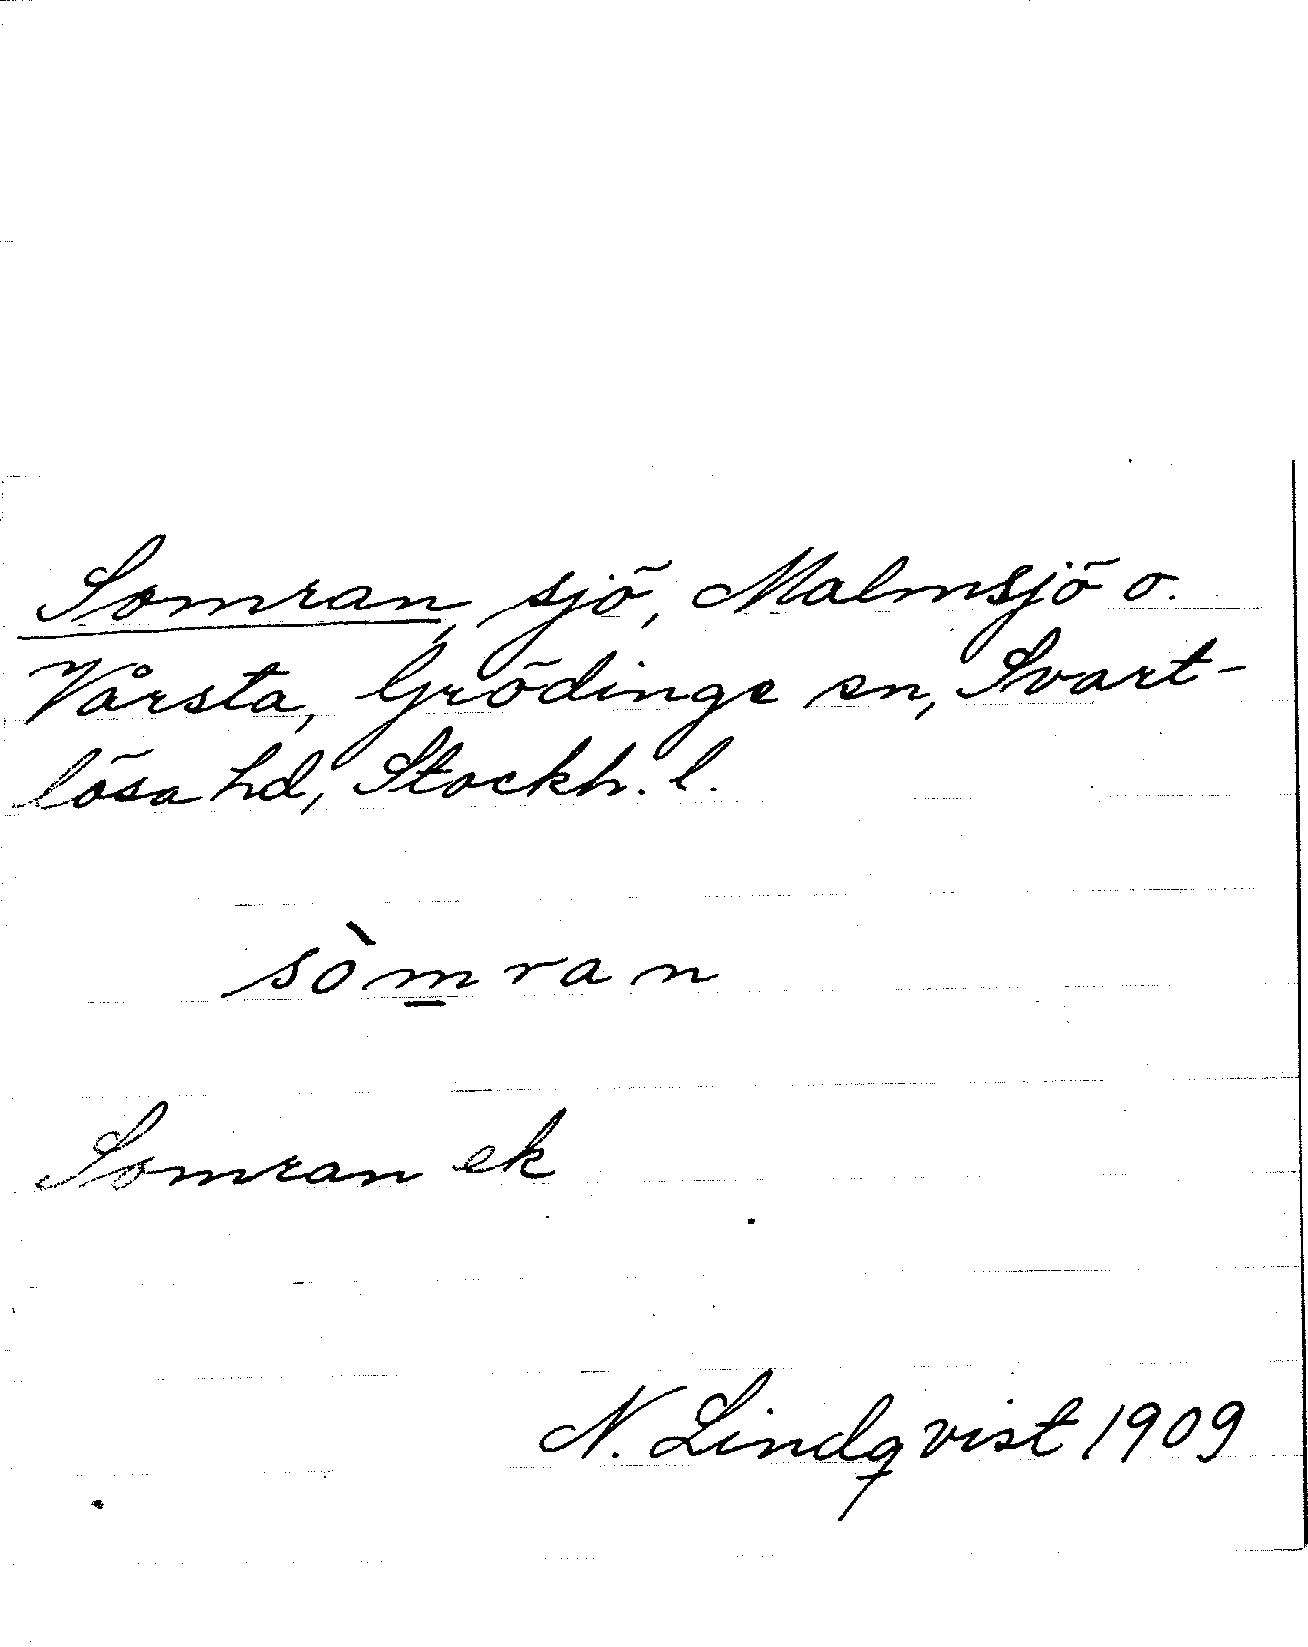 Somran, sjö, Malmsjö o.
Vårsta, Grödinge sn, Svart-
lösa hd, Stockh. l.
sòm̲ran
Somran ek
N. Lindqvist 1909